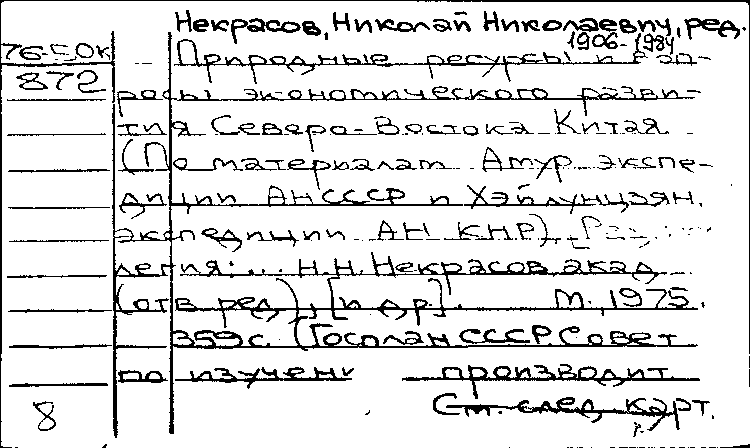 Некрасов, Николай Николаевич, ред.
1906-1984
76-50к
872
Природные ресурсы и воп-
росы экономического разви-
тия Северо-Востока Китая
(По материалам Амур. экспе-
диции АН СССР и Хэйлунцзян.
экспедиции АН КНР).
ления: ... Н.Н. Некрасов, акад
(отв ред), [и др]. М., 1975.
359 с. (Госплан СССР. Совет
по изучени производит
См. след. карт.
8